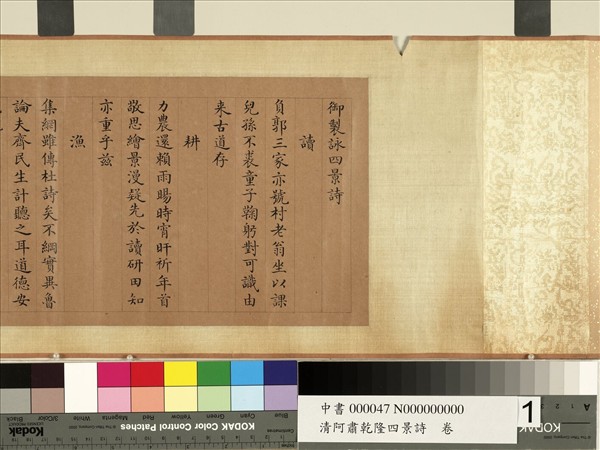 御製詠四景詩
讀
負郭三家亦號村老翁坐以課
兒孫不裘童子鞠躬對可識由
来古道存
耕
力農還賴雨暘時宵旰祈年首
敬思繪景漫疑先於讀研田知
亦重乎茲
漁
集網雖傳杜詩矣不綱實異魯
論夫齊民生計聽之耳道德安
Blue Cyan Green Yellow Red Magenta White 3/Color Black
KODAK Color Control Patches
Kodak
中書 000047 N000000000
清阿肅乾隆四景詩 卷
1
KODAK